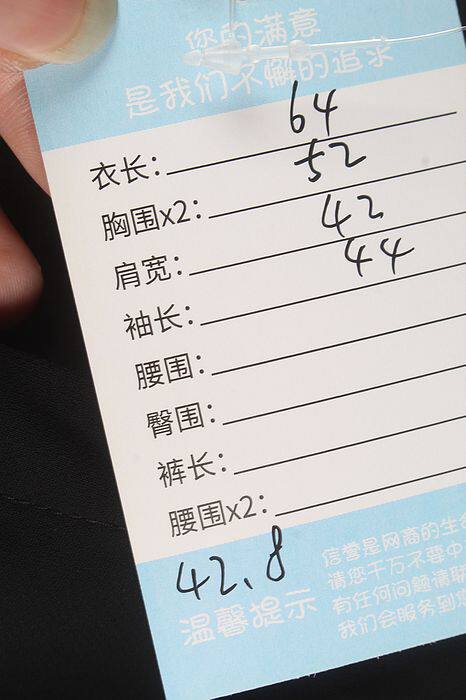 您的满意
是我们不懈的追求
衣长: 64
胸围x2: 52
肩宽: 42
袖长: 44
腰围:
臀围:
裤长:
腰围x2:
42.8
温馨提示
信誉是网商的生
请您千万不要中
有任何问题请联
我们会服务到